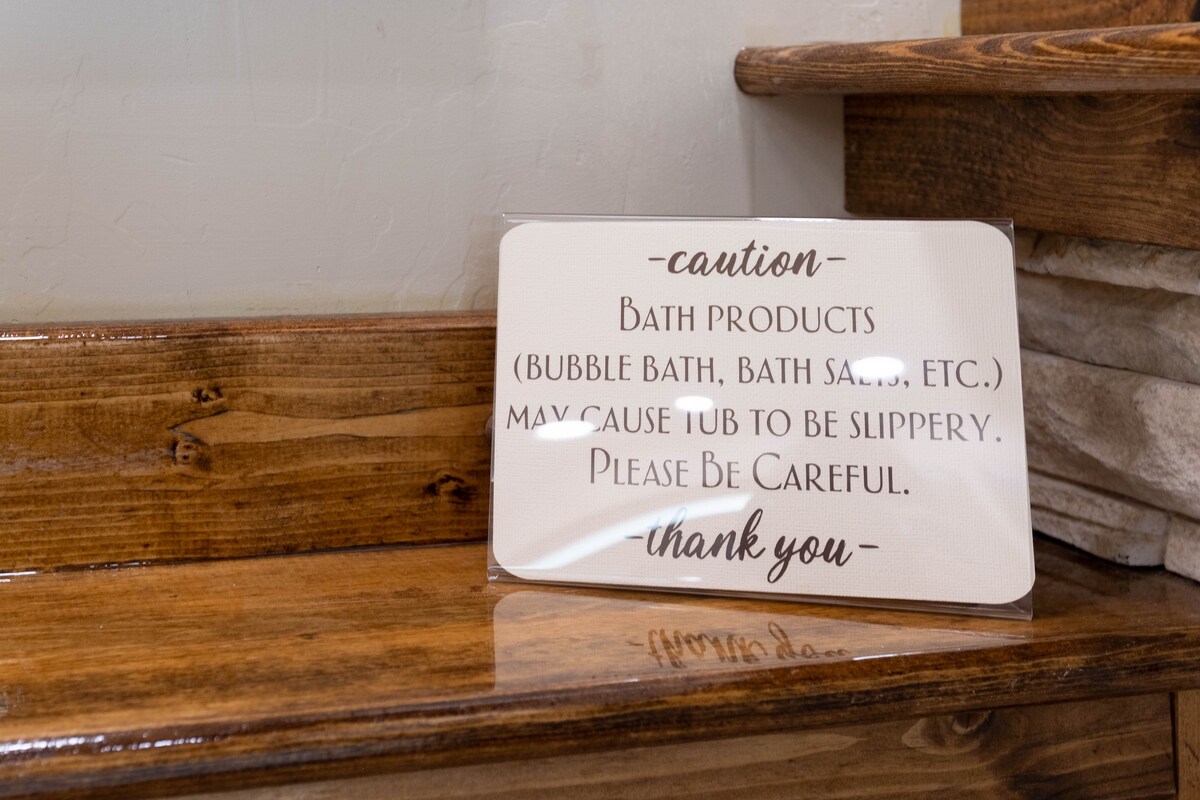 -caution-
BATH PRODUCTS
(BUBBLE BATH, BATH SALTS, ETC.)
MAY CAUSE TUB TO BE SLIPPERY.
PLEASE BE CAREFUL.
-thank you-